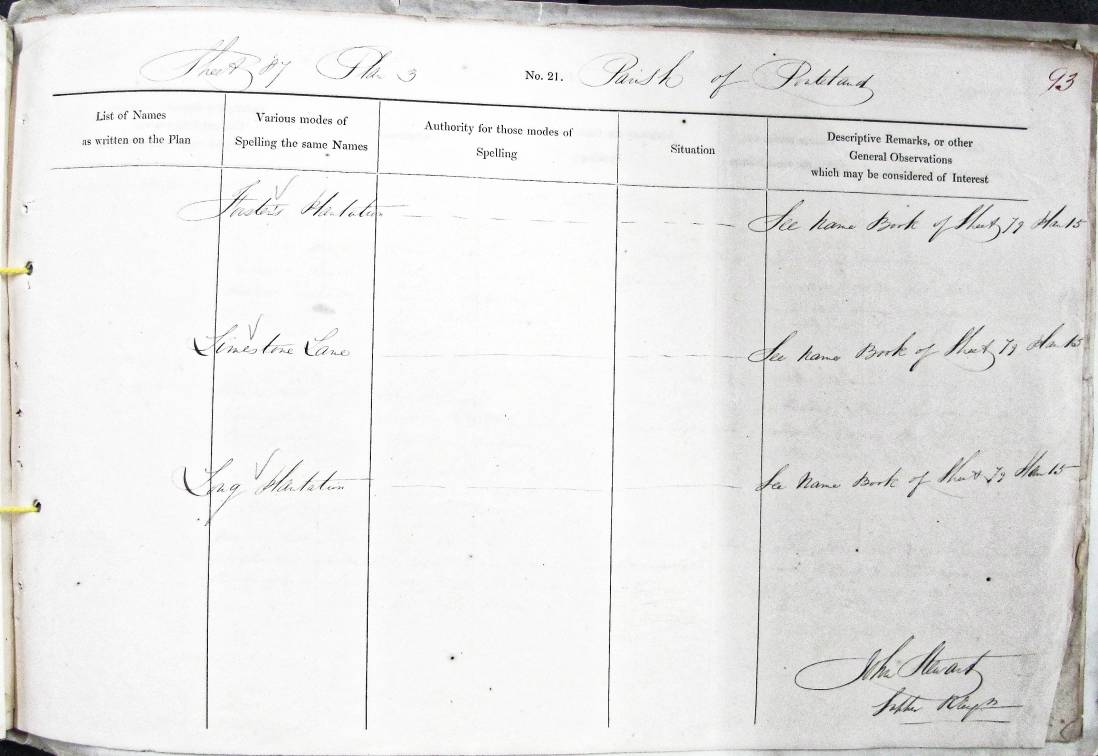 Sheet 87 Plan 3 No. 21. Parish of Ponteland 93
List of Names
as written on the Plan
Various modes of
Spelling the same Names
Authority for those modes of
Spelling
Situation
Descriptive Remarks, or other
General Observations
which may be considered of Interest
Foster's Plantation See Name Book of Sheet 79 Plan 15
Limestone Lane See Name Book of Sheet 79 Plan 15
Long Plantation See Name Book of Sheet 79 Plan 15
John Stewart
Sapper